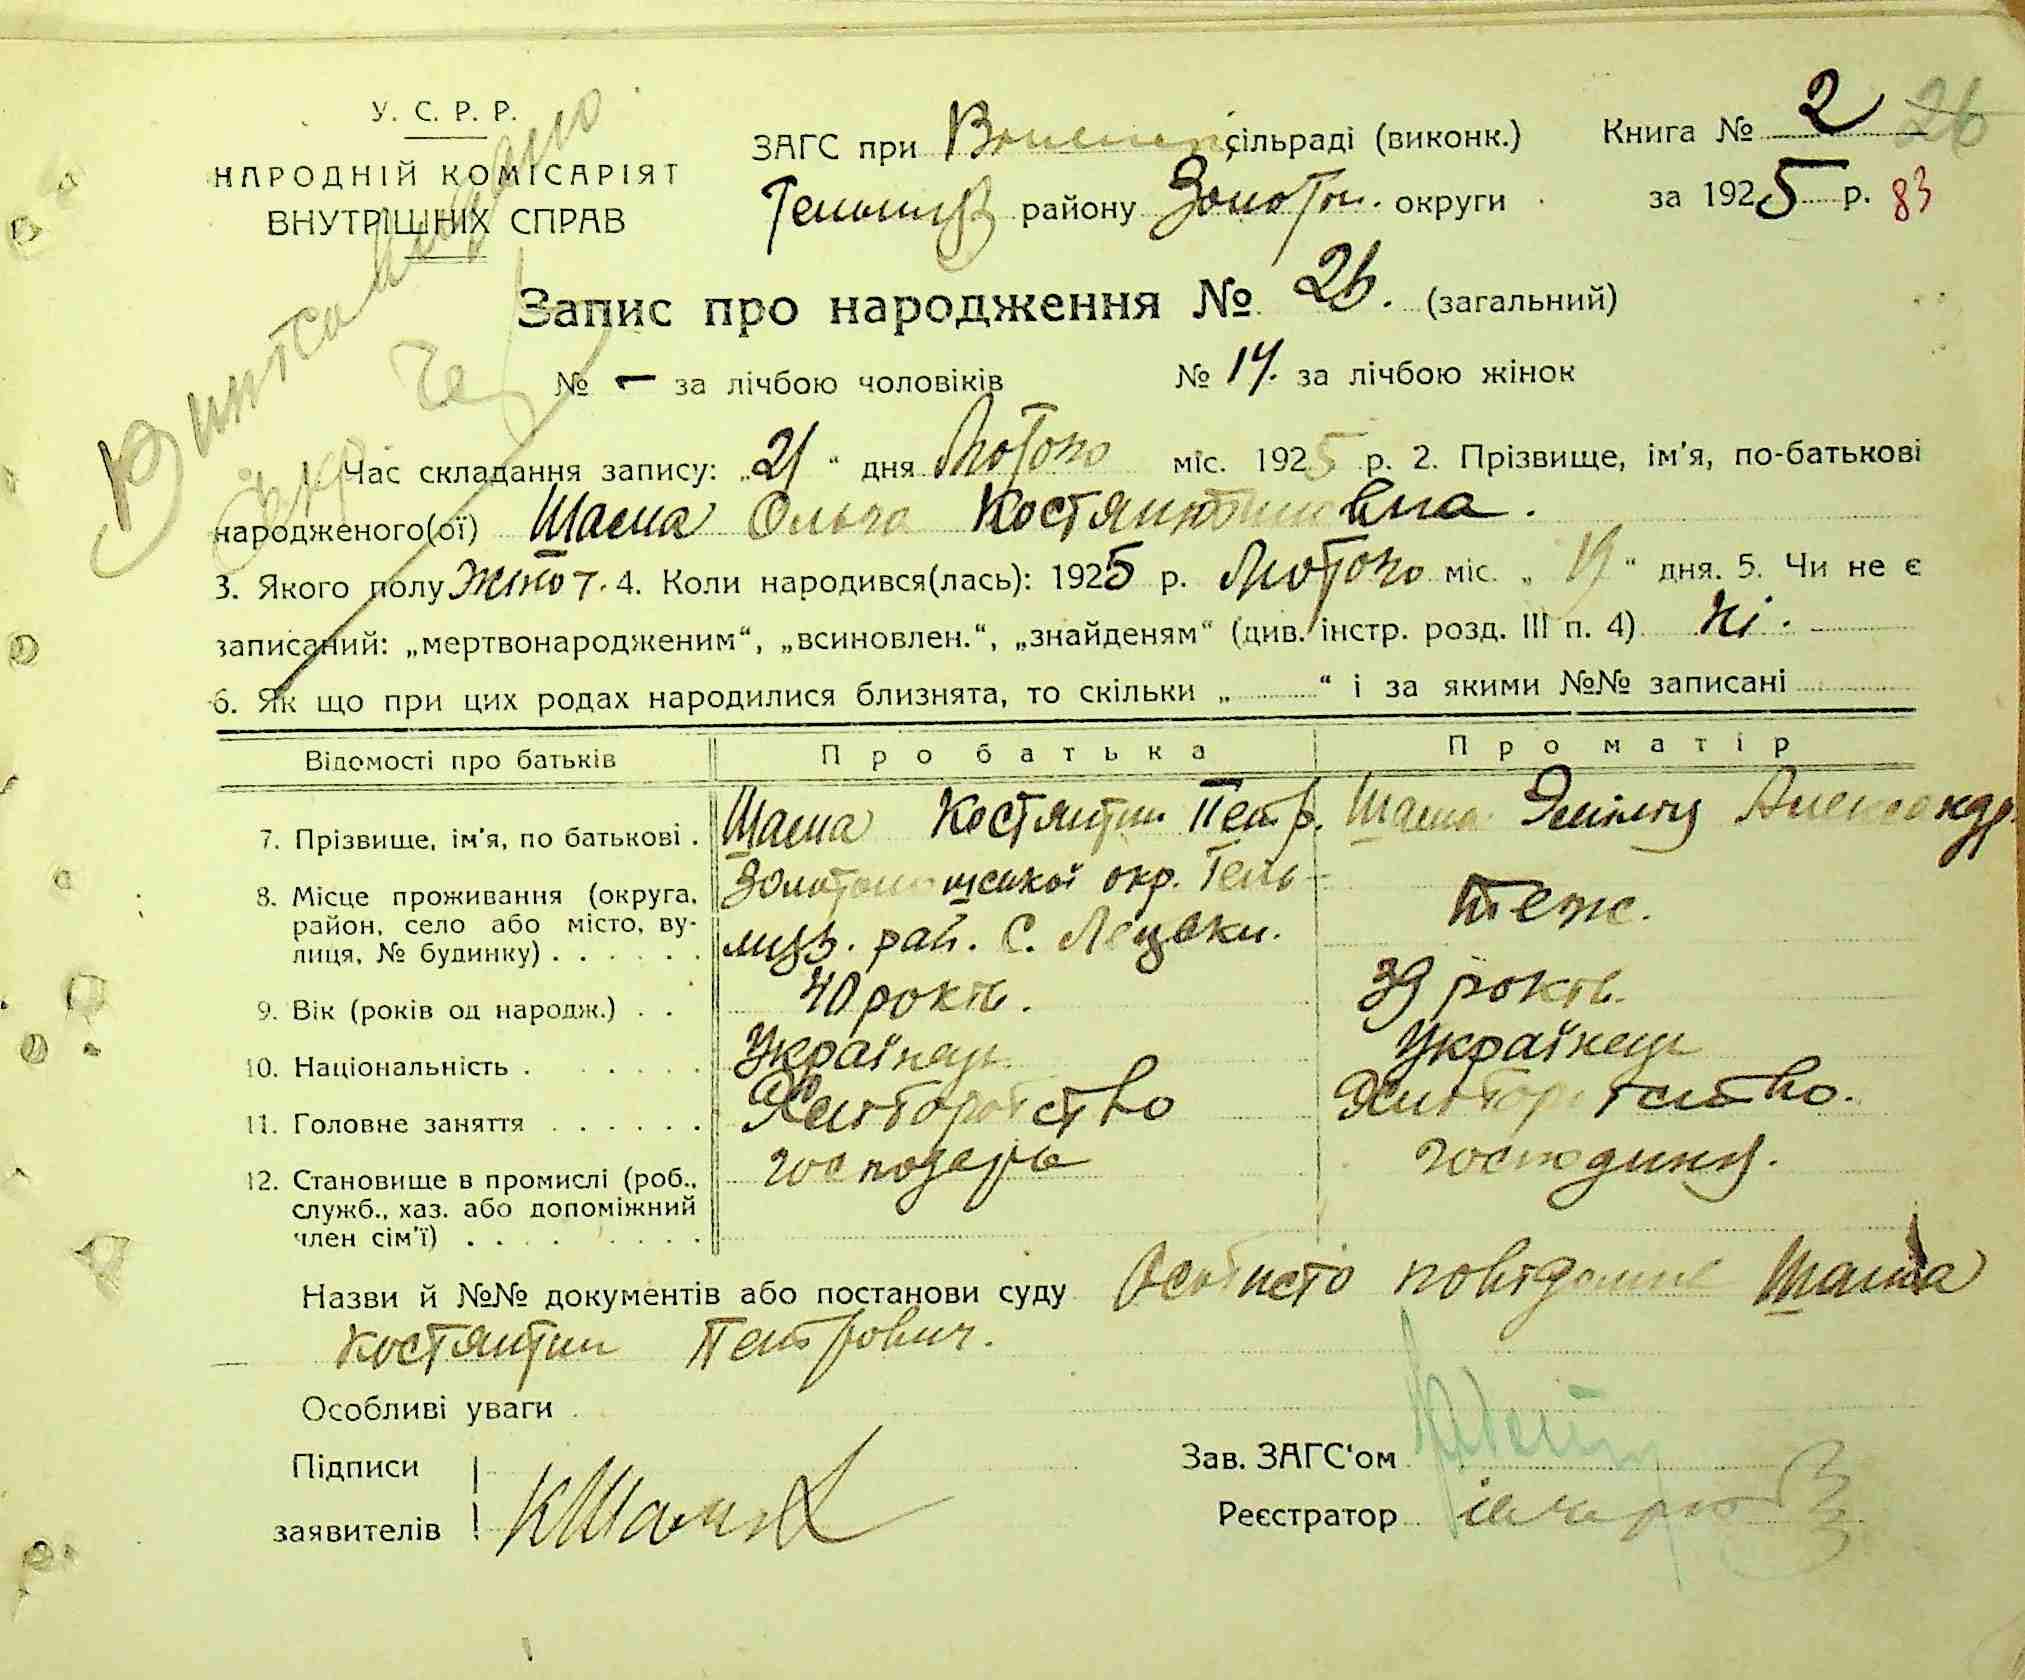 У. С. Р. Р.
НАРОДНІЙ КОМІСАРІЯТ
ВНУТРІШНІХ СПРАВ
ЗАГС при сільраді (виконк.)
Гельмяз району Золотон. округи
Книга № 2 26
за 1925 р. 83
Запис про народження № 26. (загальний)
№ – за лічбою чоловіків № 14. за лічбою жінок
Час складання запису: „21“ дня Лютого міс. 1925 р. 2. Прізвище, ім'я, по-батькові
народженого(ої) Шама Ольга Костянтиновна.
3. Якого полу жіноч. 4. Коли народився(лась): 1925 р. Лютого міс. „19“ дня. 5. Чи не є
записаний: „мертвонародженим“, „всиновлен.“, „знайденям“ (див. інстр. розд. III п. 4) Ні.
6. Як що при цих родах народилися близнята, то скільки „ “ і за якими №№ записані
Відомості про батьків Про батька Про матір
7. Прізвище, ім'я, по батькові . Шама Костянтин Петр. Шама Александр.
8. Місце проживання (округа, район, село або місто, вулиця, № будинку) . . . . . . Золотоношської окр. Гельмязв. рай. С. Лецьки. теж.
9. Вік (років од народж.) . . 40 років. 39 років.
10. Національність . . . . . . Українець Українець
11. Головне заняття . . . . . . Хліборобство Хліборобство.
12. Становище в промислі (роб., служб., хаз. або допоміжний член сім'ї) . . . . . . . . господарь господиня.
Назви й №№ документів або постанови суду Особисто повідомив Шама
Костянтин Петрович.
Особливі уваги .
Підписи
заявителів КШама
Зав. ЗАГС'ом
Реєстратор